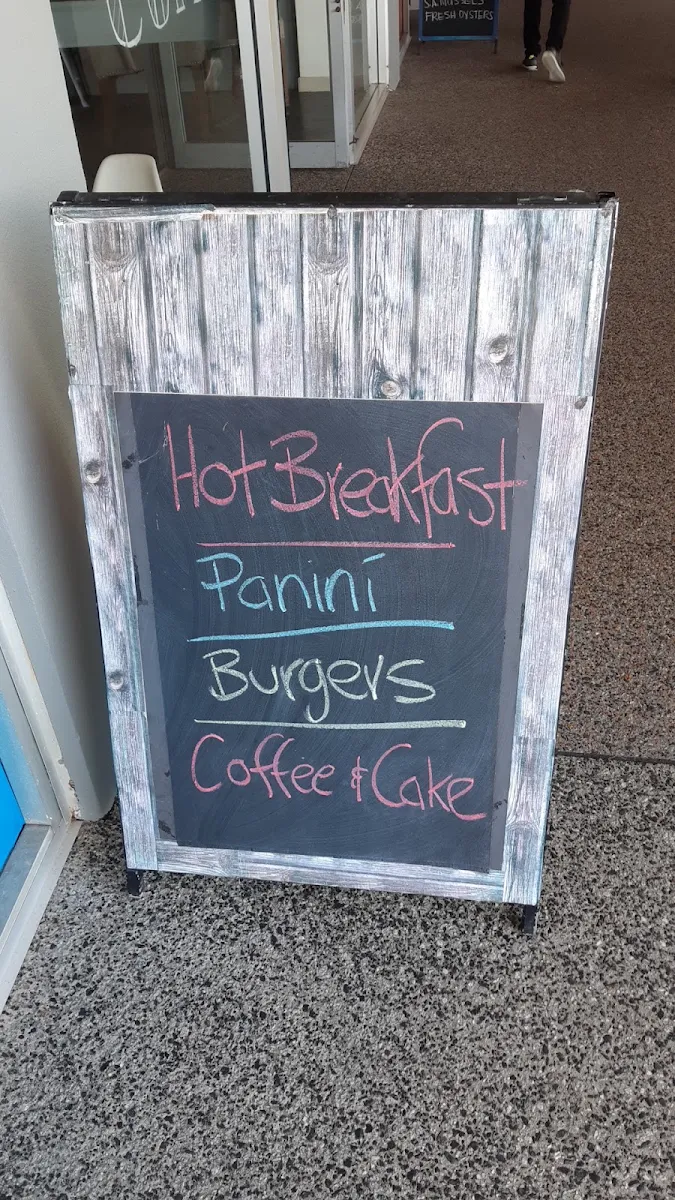 FRESH OYSTERS
Hot Breakfast
Panini
Burgers
Coffee & Cake